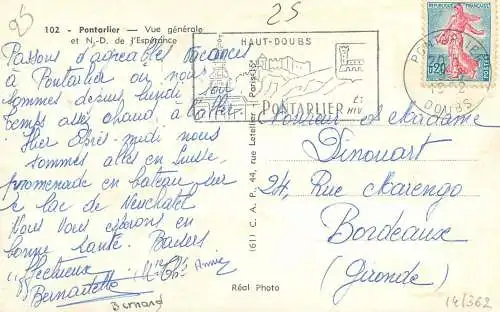 25
102 - Pontarlier — Vue générale
et N.-D. de l'Espérance
Passons d'agréables vacances
à Pontarlier où nous
sommes depuis lundi par
temps assez chaud
Hier après-midi nous
sommes allés en Suisse
promenade en bateau sur
le lac de Neuchatel
Nous vous espérons en
bonne santé. Baisers
affectueux
Bernadette Annie
Bernard
HAUT-DOUBS
PONTARLIER
REPUBLIQUE FRANÇAISE
0,20
POSTES
PONTARLIER
DOUBS
(61) C. A. P., 44, rue Letellier - Paris-XV
Monsieur et Madame
Dinouart
24, Rue Marengo
Bordeaux
(Gironde)
Réal Photo
14/362